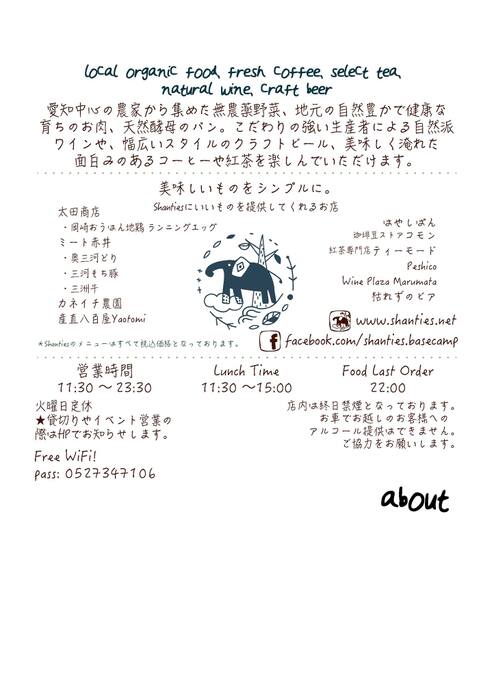 local organic food, fresh coffee, select tea,
natural wine, craft beer
愛知中心の農家から集めた無農薬野菜、地元の自然豊かで健康な
育ちのお肉、天然酵母のパン。こだわりの強い生産者による自然派
ワインや、幅広いスタイルのクラフトビール、美味しく淹れた
面白みのあるコーヒーや紅茶を楽しんでいただけます。
美味しいものをシンプルに。
Shantiesにいいものを提供してくれるお店
太田商店
・岡崎おうはん地鶏 ランニングエッグ
ミート赤井
・奥三河どり
・三河もち豚
・三洲牛
カネイチ農園
産直八百屋Yaotomi
はやしぱん
珈琲豆ストアコモン
紅茶専門店ティーモード
Peshico
Wine Plaza Marumata
枯れずのビア
www.shanties.net
facebook.com/shanties.basecamp
*Shantiesのメニューはすべて税込価格となっております。
営業時間
11:30 〜 23:30
Lunch Time
11:30 〜15:00
Food Last Order
22:00
火曜日定休
★貸切りやイベント営業の
際はHPでお知らせします。
Free WiFi!
pass: 0527347106
店内は終日禁煙となっております。
お車でお越しのお客様への
アルコール提供はできません。
ご協力をお願いします。
about